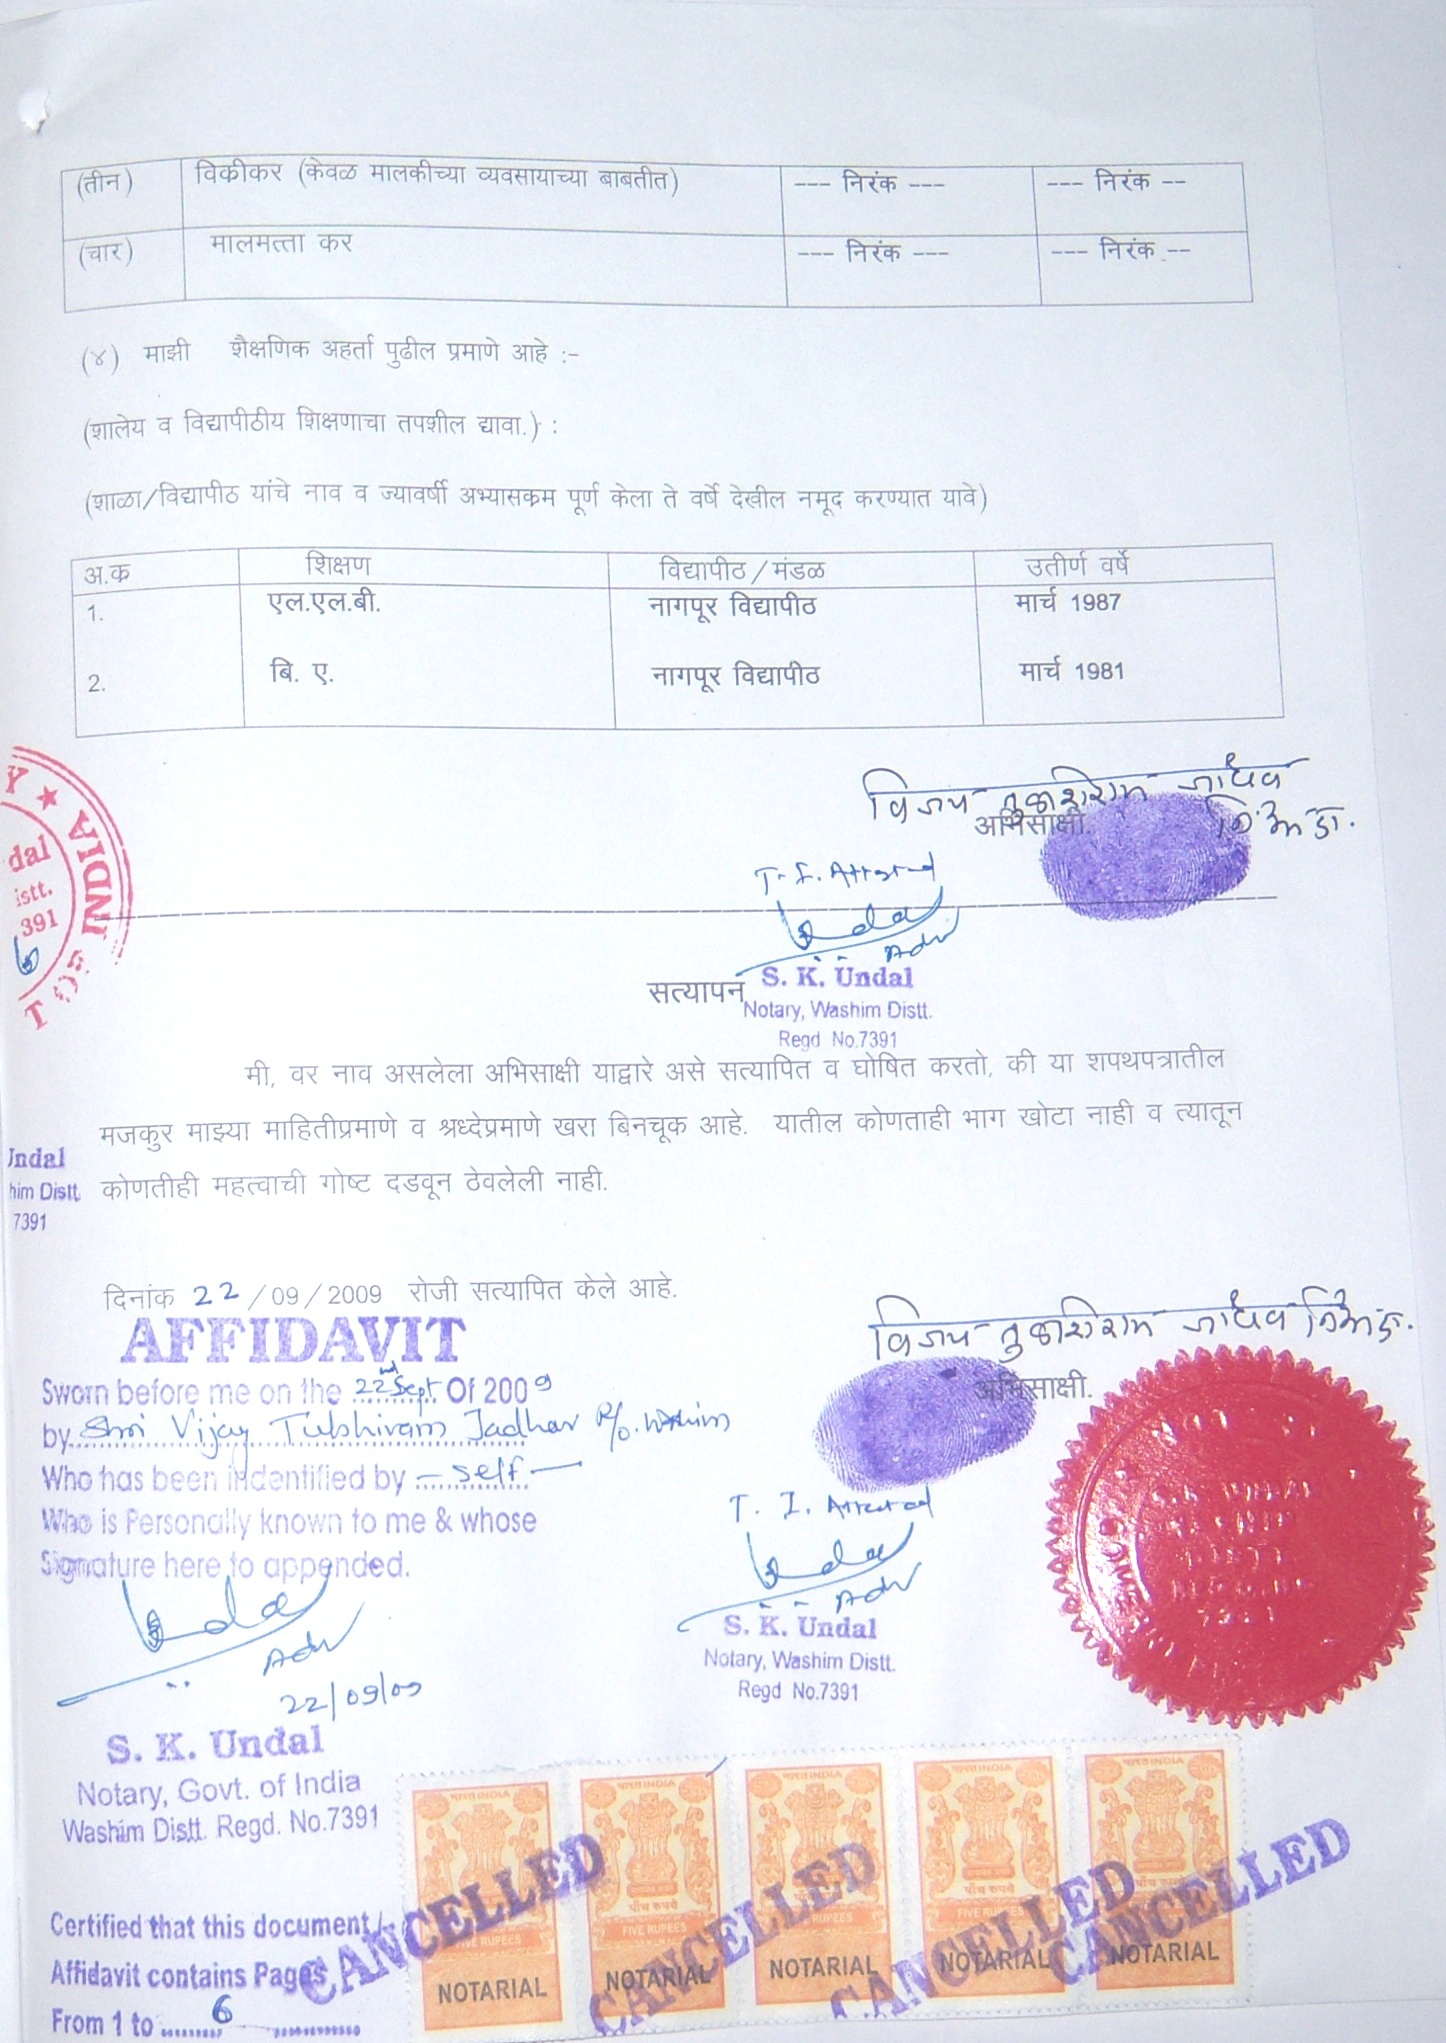 (तीन) विकीकर (केवळ मालकीच्या व्यवसायाच्या बाबतीत) --- निरंक --- --- निरंक --
(चार) मालमत्ता कर --- निरंक --- --- निरंक --
(४) माझी शैक्षणिक अहर्ता पुढील प्रमाणे आहे :-
(शालेय व विद्यापीठीय शिक्षणाचा तपशील द्यावा.) :
(शाळा/विद्यापीठ यांचे नाव व ज्यावर्षी अभ्यासक्रम पूर्ण केला ते वर्षे देखील नमूद करण्यात यावे)
अ.क शिक्षण विद्यापीठ/मंडळ उतीर्ण वर्षे
1. एल.एल.बी. नागपूर विद्यापीठ मार्च 1987
2. बि. ए. नागपूर विद्यापीठ मार्च 1981
विजय तुळशीराम जाधव
अभिसाक्षी.
T. I. Attested
Adv
S. K. Undal
सत्यापन Notary, Washim Distt.
Regd No.7391
INDIA
dal
istt.
391
मी, वर नाव असलेला अभिसाक्षी याद्वारे असे सत्यापित व घोषित करतो, की या शपथपत्रातील
मजकुर माझ्या माहितीप्रमाणे व श्रध्देप्रमाणे खरा बिनचूक आहे. यातील कोणताही भाग खोटा नाही व त्यातून
कोणतीही महत्वाची गोष्ट दडवून ठेवलेली नाही.
Undal
him Distt.
7391
दिनांक 22/09/2009 रोजी सत्यापित केले आहे.
विजय तुळशीराम जाधव
अभिसाक्षी.
AFFIDAVIT
Sworn before me on the 22nd Sept. Of 2009
by Shri Vijay Tulshiram Jadhav R/o. Washim
Who has been indentified by - self -
Who is Personally known to me & whose
Signature here to appended.
Adv
22/09/09
T. I. Attested
Adv
S. K. Undal
Notary, Washim Distt.
Regd No.7391
S. K. Undal
Notary, Govt. of India
Washim Distt. Regd. No.7391
Certified that this document/
Affidavit contains Pages
From 1 to 6
भारत INDIA भारत INDIA भारत INDIA भारत INDIA भारत INDIA
पाँच रुपये पाँच रुपये
FIVE RUPEES FIVE RUPEES FIVE RUPEES FIVE RUPEES
NOTARIAL NOTARIAL NOTARIAL NOTARIAL NOTARIAL
CANCELLED CANCELLED CANCELLED CANCELLED